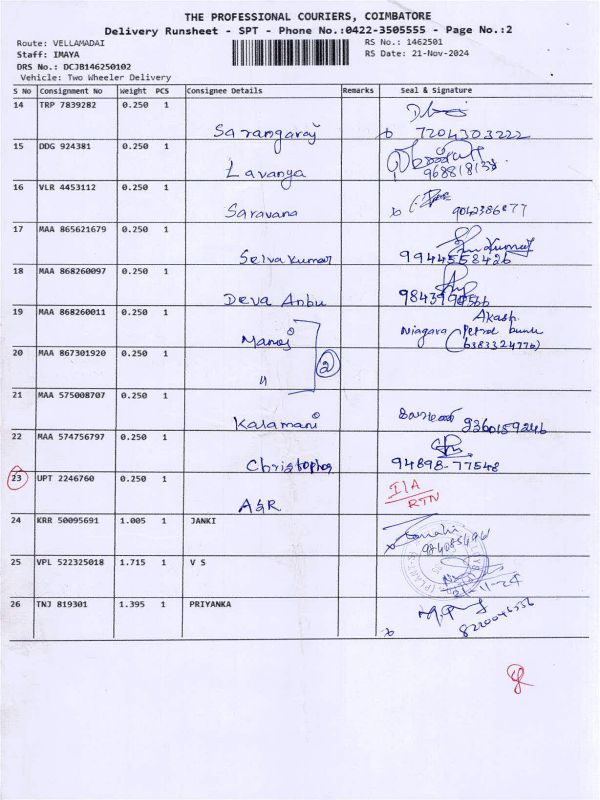 THE PROFESSIONAL COURIERS, COIMBATORE
Delivery Runsheet - SPT - Phone No.:0422-3505555 - Page No.:2
Route: VELLAMADAI RS No.: 1462501
Staff: IMAYA RS Date: 21-Nov-2024
DRS No.: DCJB146250102
Vehicle: Two Wheeler Delivery
S No Consignment No Weight PCS Consignee Details Remarks Seal & Signature
14 TRP 7839282 0.250 1
Sarangaraj 7204303222
15 DDG 924381 0.250 1
Lavanya 968818138
16 VLR 4453112 0.250 1
Saravana 9042386877
17 MAA 865621679 0.250 1
Selva Kumar 9944558426
18 MAA 868260097 0.250 1
Deva Anbu
19 MAA 868260011 0.250 1 Akash
Manoj Niagara Petrol bunk
(6383324776)
20 MAA 867301920 0.250 1
" 2
21 MAA 575008707 0.250 1
Kalamani 9360159246
22 MAA 574756797 0.250 1
Christopher 94898-77548
23 UPT 2246760 0.250 1 I/A
A&R RTN
24 KRR 50095691 1.005 1 JANKI
25 VPL 522325018 1.715 1 V S
21-11-24
26 TNJ 819301 1.395 1 PRIYANKA